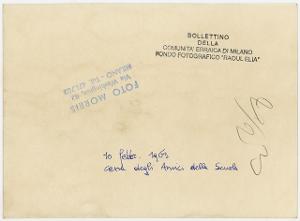 BOLLETTINO
DELLA
COMUNITA' EBRAICA DI MILANO
FONDO FOTOGRAFICO "RAOUL ELIA"
FOTO MORRIS
Via Washington,
MILANO - Tel.
10 Febbr. 1963
cena degli Amici della Scuola